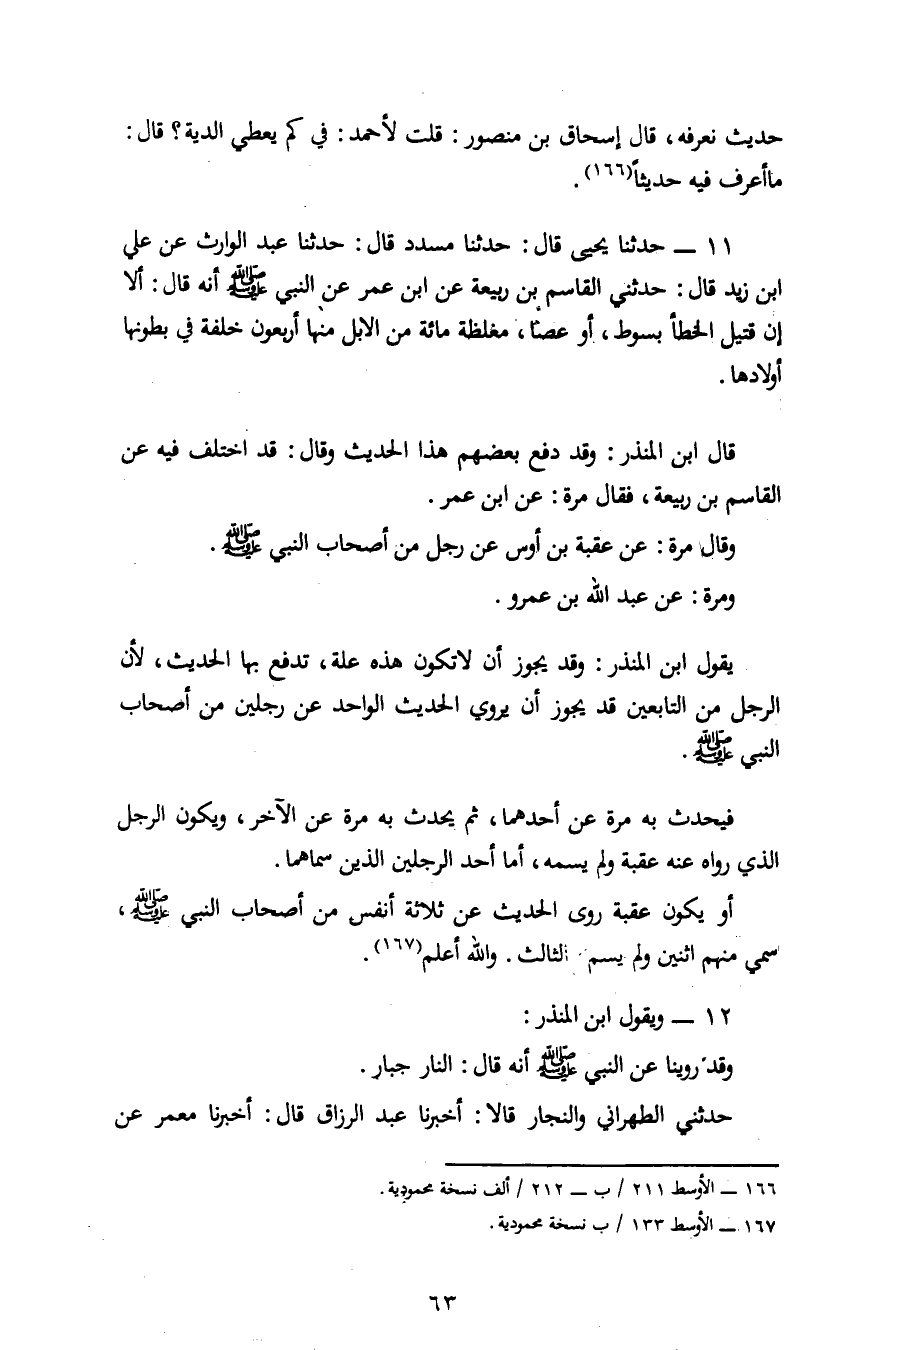 حديث نعرفه، قال إسحاق بن منصور : قلت لأحمد : في كم يعطي الدية؟ قال :
ماأعرف فيه حديثاً(١٦٦) .
١١ ــ حدثنا يحيى قال : حدثنا مسدد قال : حدثنا عبد الوارث عن علي
ابن زيد قال : حدثني القاسم بن ربيعة عن ابن عمر عن النبي ﷺ أنه قال : ألا
إن قتيل الخطأ بسوط، أو عصا، مغلظة مائة من الابل منها أربعون خلفة في بطونها
أولادها .
قال ابن المنذر : وقد دفع بعضهم هذا الحديث وقال : قد اختلف فيه عن
القاسم بن ربيعة، فقال مرة : عن ابن عمر .
وقال مرة : عن عقبة بن أوس عن رجل من أصحاب النبي ﷺ .
ومرة : عن عبد الله بن عمرو .
يقول ابن المنذر : وقد يجوز أن لاتكون هذه علة، تدفع بها الحديث، لأن
الرجل من التابعين قد يجوز أن يروي الحديث الواحد عن رجلين من أصحاب
النبي ﷺ .
فيحدث به مرة عن أحدهما، ثم يحدث به مرة عن الآخر، ويكون الرجل
الذي رواه عنه عقبة ولم يسمه، أما أحد الرجلين الذين سماهما .
أو يكون عقبة روى الحديث عن ثلاثة أنفس من أصحاب النبي ﷺ ،
سمي منهم اثنين ولم يسم الثالث . والله أعلم(١٦٧) .
١٢ ــ ويقول ابن المنذر :
وقد روينا عن النبي ﷺ أنه قال : النار جبار .
حدثني الطهراني والنجار قالا : أخبرنا عبد الرزاق قال : أخبرنا معمر عن
١٦٦ ــ الأوسط ٢١١ / ب ــ ٢١٢ / ألف نسخة محمودية .
١٦٧ ــ الأوسط ١٣٣ / ب نسخة محمودية .
٦٣